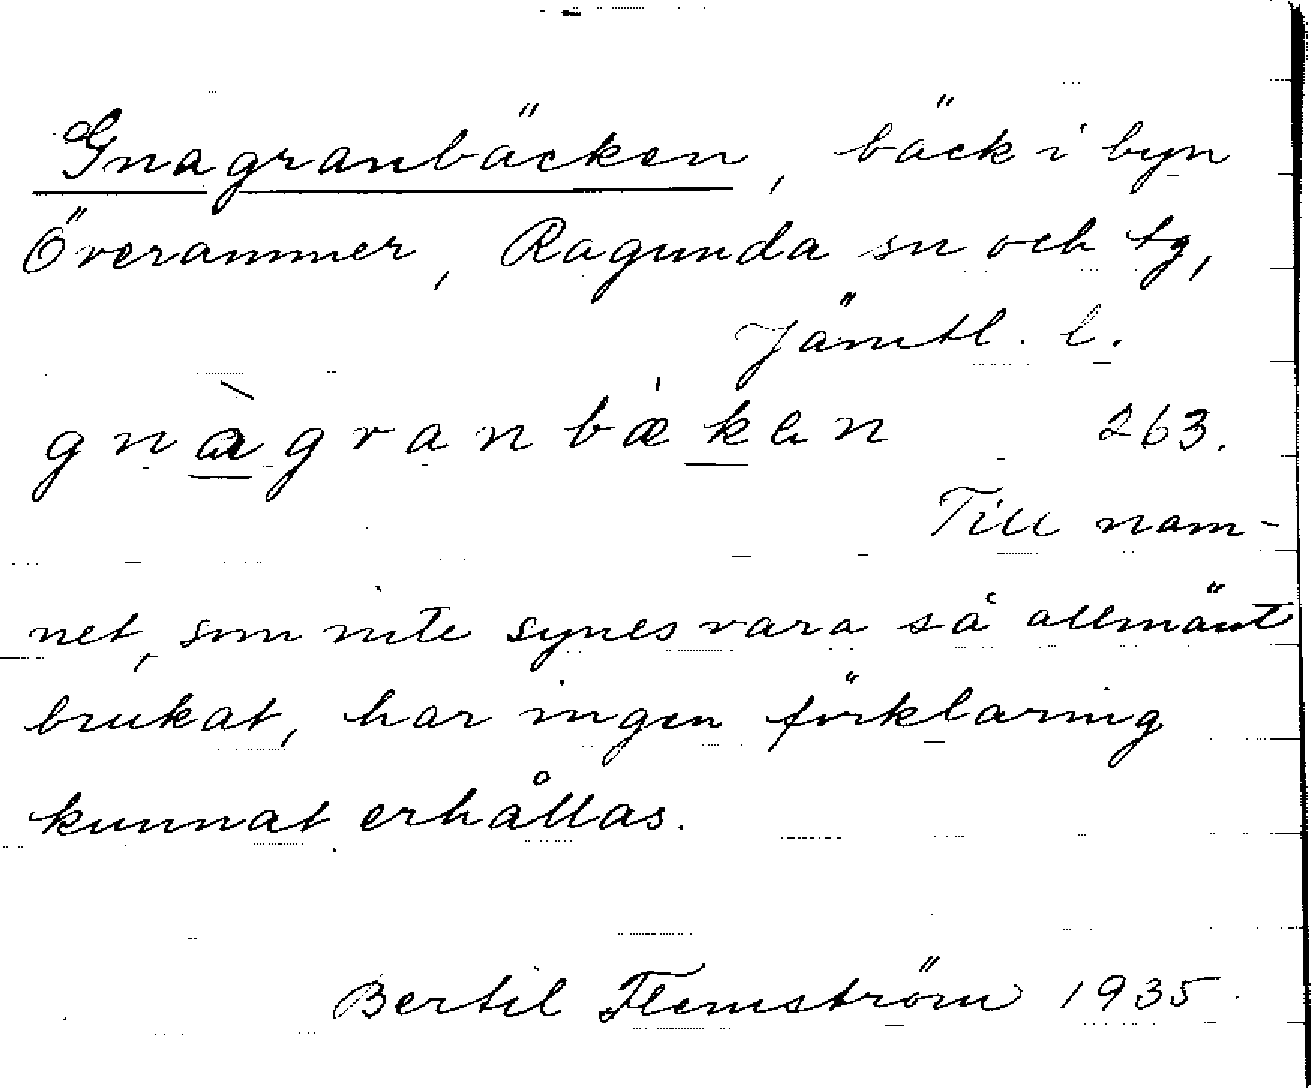 Gnagranbäcken, bäck i byn
Överammer, Ragunda sn och tg,
Jämtl. l.
gnàgranbækan 263.
Till nam-
net, som inte synes vara så allmänt
brukat, har ingen förklaring
kunnat erhållas.
Bertil Flemström 1935.